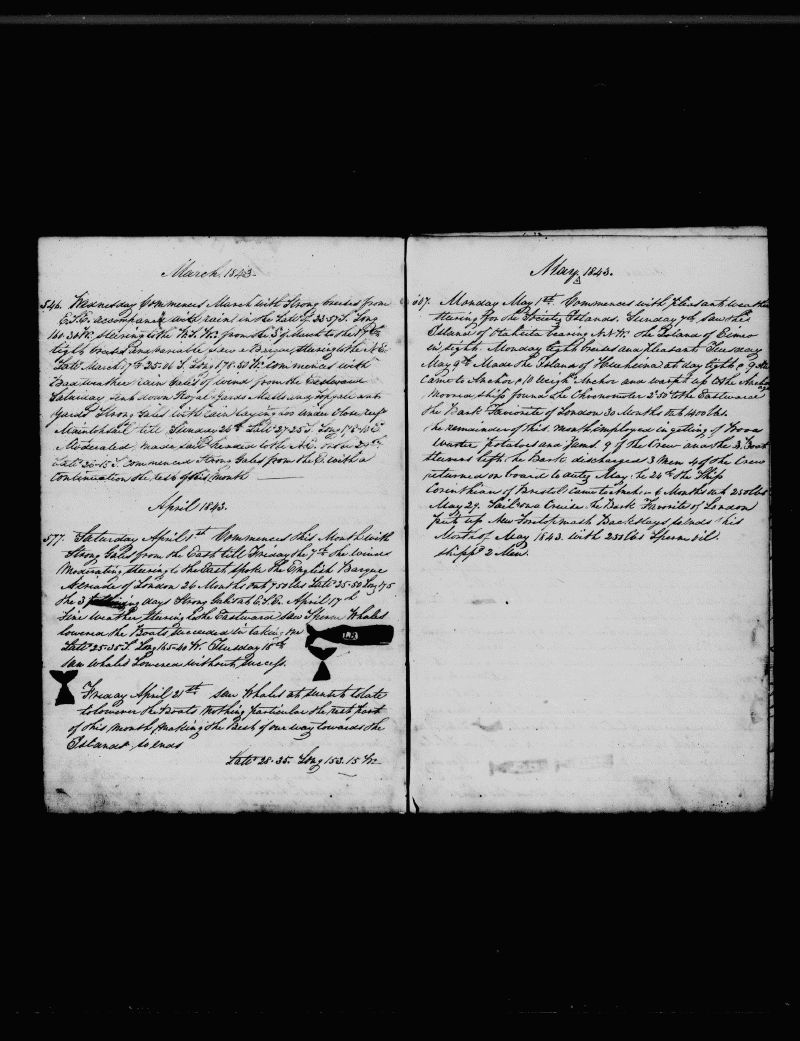 March, 1843.
546. Wednesday Commences March with Strong breezes from
E.S.E. accompaned with rain in the Latt of 33·57 S. Long
160·30 W. steering to the W.S.W. from the 3 of March to the 17th
light breezes and variable saw a Barque steering to the N.E.
Latt March 17th 35·01 S. Long 178·50 W. Commences with
Bad weather rain Gales of wind from the Eastward
Saturday sent down Royal yards Masts and topgallant
yards Strong Gales with rain laying too under Close reeft
Maintopsail till Sunday 26th Latt 27·25 S. Long
Moderated made sail headed to the
Commences Strong Gales from the E. with a
Continuation the rest of this month
April 1843.
577. Saturday April 1st Commences this Month with
Strong Gales from the East till Friday the 7th the winds
Moderating, steering to the East spoke the English Barque
of London 26 Months out 750 bls Latt 35·50 Long 175
the 3 days Strong Gales at E.S.E. April 17th
Fine weather Steering to the Eastward saw Sperm Whales
lowered the Boats Succeeded in taking one
Latt 25·35 S. Long 165·40 W. Tuesday 18th
saw Whales Lowered without success.
Friday April 21st saw Whales at sunset to late
to lower the Boats Nothing particular the rest part
of this month, making the Best of our way towards the
Islands so ends
Latt 28·35. Long 153·15 W
May, 1843.
607. Monday May 1st Commences with pleasant weather
steering for the Society Islands. Sunday 7th saw the
Island of Otaheite bearing N.N.W. the Island of Eimeo
in sight Monday light breezes and pleasant Tuesday
May 9th Made the Island of Huaheina at day light,
Came to Anchor, weigh Anchor and warpt up to the Anchorage
Moored ship found the Chronometer 2·50 to the Eastward
the Bark Favorite of London 30 Months out 400 bls
the remainder of this Month employed in getting of Wood
Water, potatoes and yams. 9 of the Crew and the 3 Boat
steerers left the Bark discharged 3 Men 4 of the Crew
returned on board to duty May the 24th the Ship
Corinthian of Bristol Came to Anchor 6 Months out 250 bls
May 29. Sail on a Cruise the Bark Favorite of London
put up New Foretopmast Backstays so ends this
Month of May 1843. with 230 bls Sperm oil.
shipp'd 2 Men.